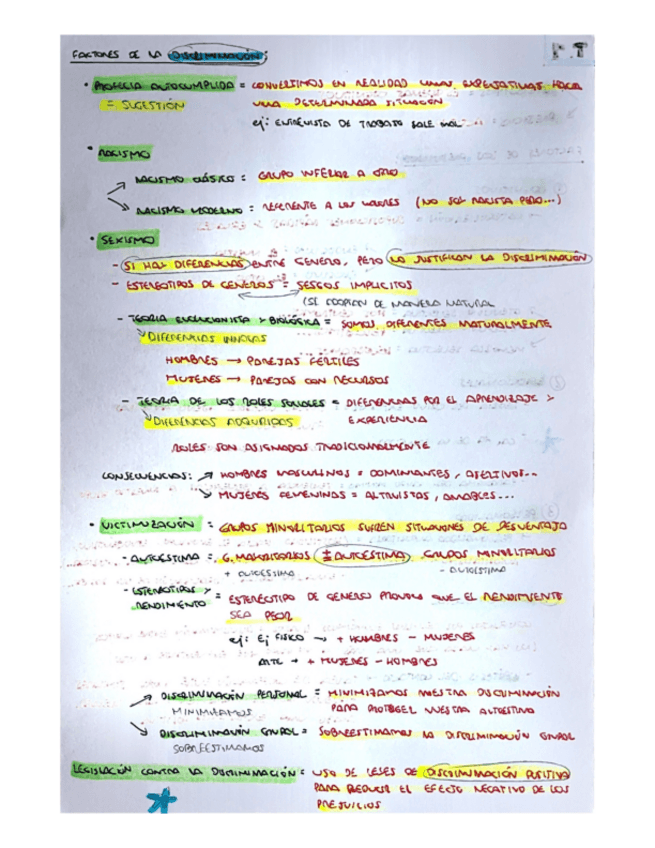 FACTORES DE LA DISCRIMINACIÓN:
• PROFECÍA AUTOCUMPLIDA = CONVERTIMOS EN REALIDAD UNAS EXPECTATIVAS HACIA
= SUGESTIÓN UNA DETERMINADA SITUACIÓN
ej: ENTREVISTA DE TRABAJO SALE MAL
• RACISMO
RACISMO CLÁSICO = GRUPO INFERIOR A OTRO
RACISMO MODERNO = REFERENTE A LOS VALORES (NO SOY RACISTA PERO...)
• SEXISMO
- SI HAY DIFERENCIAS ENTRE GENERO, PERO NO JUSTIFICAN LA DISCRIMINACIÓN
- ESTEREOTIPOS DE GENEROS = SESGOS IMPLICITOS
(SE COPIAN DE MANERA NATURAL
- TEORIA EVOLUCIONISTA Y BIOLÓGICA = SOMOS DIFERENTES NATURALMENTE
DIFERENCIAS INNATAS
HOMBRES → PAREJAS FÉRTILES
MUJERES → PAREJAS CON RECURSOS
- TEORIA DE LOS ROLES SOCIALES = DIFERENCIAS POR EL APRENDIZAJE Y
DIFERENCIAS ADQUIRIDAS EXPERIENCIA
ROLES SON ASIGNADOS TRADICIONALMENTE
CONSECUENCIAS: ↗ HOMBRES MASCULINOS = DOMINANTES, ASERTIVOS...
↘ MUJERES FEMENINAS = ALTRUISTAS, AMABLES...
• VICTIMIZACIÓN = GRUPOS MINORITARIOS SUFREN SITUACIONES DE DESVENTAJA
- AUTOESTIMA = G. MAYORITARIOS ± AUTOESTIMA GRUPOS MINORITARIOS
+ AUTOESTIMA - AUTOESTIMA
- ESTEREOTIPOS Y
RENDIMIENTO = ESTEREOTIPO DE GENERO PROVOCA QUE EL RENDIMIENTO
SEA PEOR
ej: Ej FISICO → + HOMBRES - MUJERES
ARTE → + MUJERES - HOMBRES
DISCRIMINACIÓN PERSONAL = MINIMIZAMOS NUESTRA DISCRIMINACIÓN
MINIMIZAMOS PARA PROTEGER NUESTRA AUTOESTIMA
DISCRIMINACIÓN GRUPAL = SOBREESTIMAMOS LA DISCRIMINACIÓN GRUPAL
SOBREESTIMAMOS
LEGISLACIÓN CONTRA LA DISCRIMINACIÓN = USO DE LEYES DE DISCRIMINACIÓN POSITIVA
PARA REDUCIR EL EFECTO NEGATIVO DE LOS
PREJUICIOS